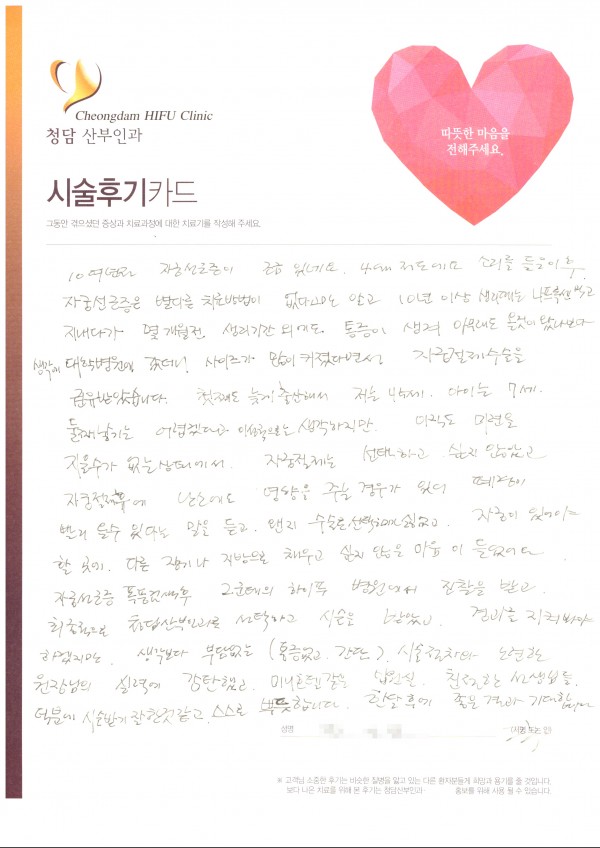 Cheongdam HIFU Clinic
청담 산부인과
따뜻한 마음을
전해주세요.
시술후기카드
그동안 겪으셨던 증상과 치료과정에 대한 치료기를 작성해 주세요.
10여년전 자궁선근증이 조금 있네요. 4cm 정도에요 소리를 들은이후
자궁선근증은 별다른 치료방법이 없다고만 알고 10년 이상 생리때는 먹고
지내다가 몇 개월전. 생리기간 외에도 통증이 생겨 아무래도 올것이 왔나보다
생각에 대학병원에 갔더니 사이즈가 많이 커졌다면서 자궁절제수술을
권유받았습니다. 첫째도 늦게 출산해서 저는 45세. 아이는 7세.
둘째낳기는 어렵겠다고 생각하지만. 아직도 미련을
지울수가 없는 상태에서. 자궁절제는 선택하고 싶지 않았고
자궁절제후에 난소에도 영향을 주는 경우가 있어 폐경이
빨리 올수 있다는 말을 듣고. 왠지 수술은 싫었고. 자궁이 있어야
할 곳에. 다른 장기나 지방으로 채우고 싶지 않은 마음이 들었어요
자궁선근증 폭풍검색후 2군데의 하이푸 병원에서 진찰을 받고.
최종적으로 청담산부인과를 선택하고 시술을 받았고. 결과를 지켜봐야
하겠지만. 생각보다 부담없는 (통증없고. 간단). 시술절차와
원장님의 실력에 감탄했고. 입원실. 친절한 선생님들.
덕분에 시술받기 잘한것같고. 스스로 뿌듯합니다. 한달후에 좋은 결과 기대합니다
성명
(서명 또는 인)
※ 고객님 소중한 후기는 비슷한 질병을 앓고 있는 다른 환자분들게 희망과 용기를 줄 것입니다.
보다 나은 치료를 위해 본 후기는 청담산부인과· 홍보를 위해 사용 될 수 있습니다.